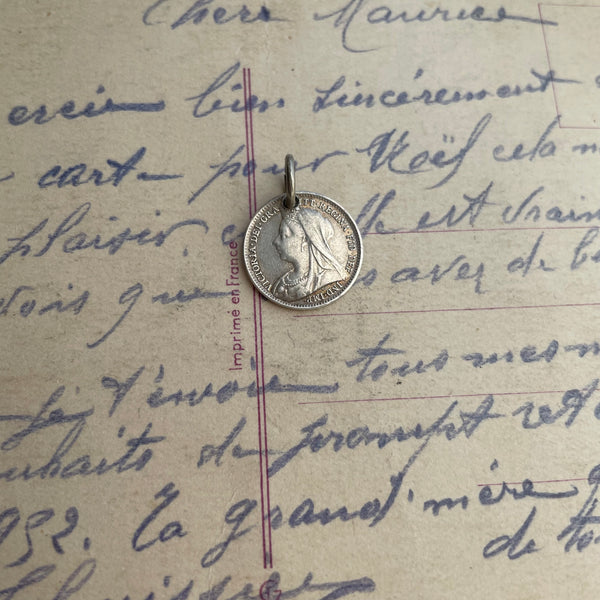 Chere Maurice
ercie bien sincérement
carte pour Noël cela
plaisir, elle est vraim
vois que as avez de b
Je t'envoie tous mes
uhaits de prompt reta
1952. Ta grand'mère q
de to
Imprimé en France
VICTORIA·DEI·GRA REGINA·FID·DEF·IND·IMP